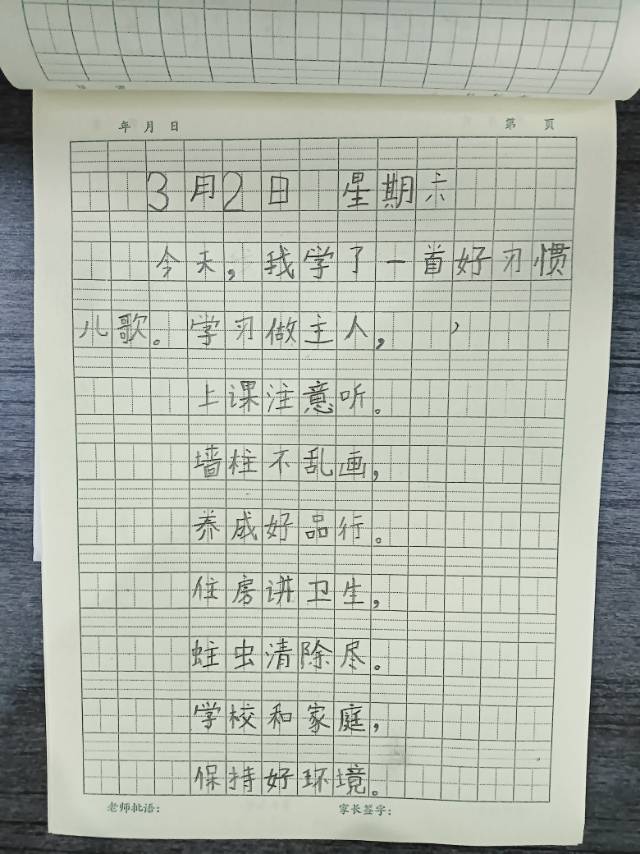 年 月 日 第 页
3月2日 星期六
今天，我学了一首好习惯
儿歌。学习做主人，
上课注意听。
墙柱不乱画，
养成好品行。
住房讲卫生，
蛀虫清除尽。
学校和家庭，
保持好环境。
老师批语： 家长签字：